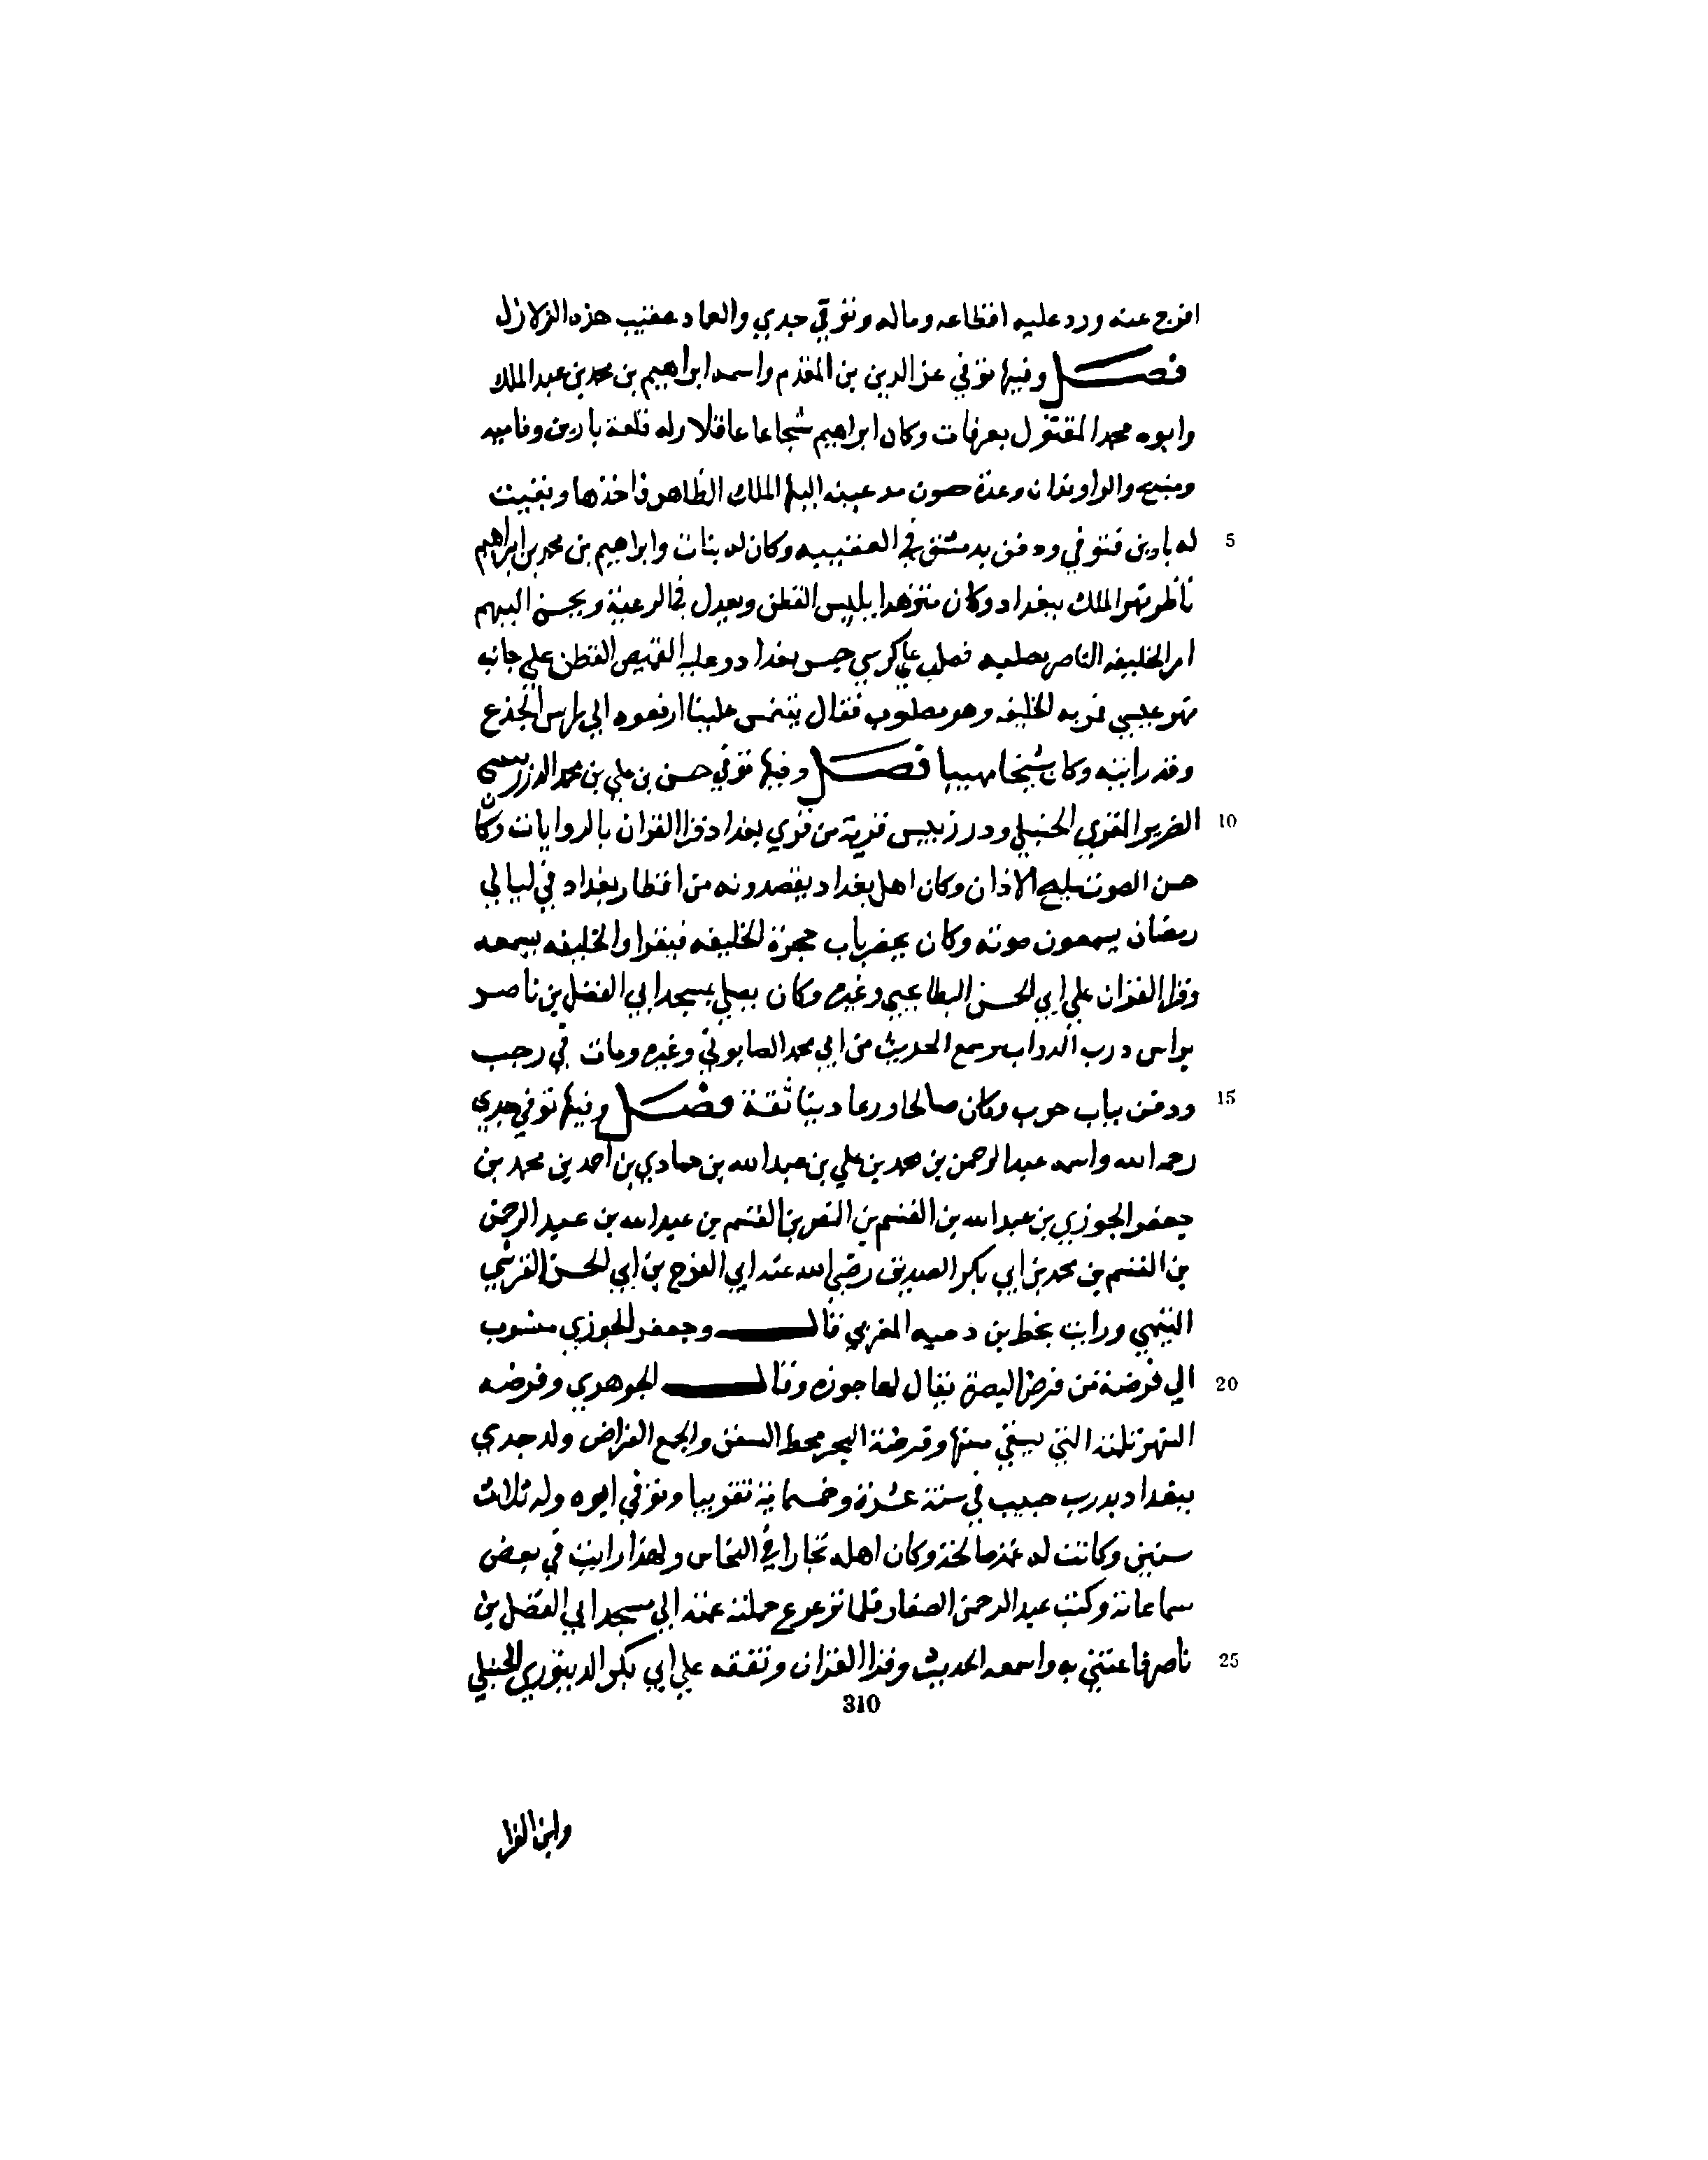 افرج عنه ورد عليه اقطاعه وماله وتوفي جدي والعماد عقيب هذه الزلازل
فصل وفيها توفي عز الدين بن المقدم واسمه ابراهيم بن محمد بن عبد الملك
وابوه محمد المقتول بعرفات وكان ابراهيم شجاعا عاقلا وله قلعة بارين وفاميه
ومنبج والراوندان وعدة حصون الملك الظاهر فاخذها وبقيت
5 له بارين فتوفي ودفن بدمشق في وكان له بنات وابراهيم بن محمد بن ابراهيم
ناظر نهر الملك ببغداد وكان متزهدا يلبس القطن ويعدل في الرعية ويحسن اليهم
امر الخليفه الناصر بصلبه فصلب علي كرسي جسر بغداد وعليه القميص القطن علي جانب
نهر عيسي فمر به الخليفه وهو مصلوب فقال علينا ارفعوه الي راس الجذع
وقد رايته وكان شيخا مهيبا فصل وفيها توفي حسن بن علي بن محمد
10 الضرير المقري الحنبلي ودرزبيس قرية من قري بغداد قرا القران بالروايات وكان
حسن الصوت مليح الاذان وكان اهل بغداد يقصدونه من اقطار بغداد في ليالي
رمضان يسمعون صوته وكان يحضر باب حجرة الخليفه فيقرا والخليفه يسمعه
وقرا القران علي ابي الحسن البطايحي وغيره وكان يصلي بمسجد ابي الفضل بن ناصر
براس درب الدواب وسمع الحديث من ابي محمد الصابوني وغيره ومات في رجب
15 ودفن بباب حرب وكان صالحا ورعا دينا ثقة فصل وفيها توفي جدي
رحمه الله واسمه عبد الرحمن بن محمد بن علي بن عبد الله بن حمادي بن احمد بن محمد بن
جعفر الجوزي بن عبد الله بن القسم بن النضر بن القسم بن عبد الله بن عبد الرحمن
بن القسم بن محمد بن ابي بكر الصديق رضي الله عنه ابي الفرج بن ابي الحسن القرشي
التيمي ورايت بخط بن دحيه المغربي قال وجعفر الجوزي منسوب
20 الي فرضة من فرض البصرة يقال لها جوزه وقال الجوهري وفرضه
النهر ثلمته التي يستقي منها وفرضة البحر محط السفن والجمع الفراض ولد جدي
ببغداد بدرب حبيب في سنة عشرة وخمسماية تقريبا وتوفي ابوه وله ثلاث
سنين وكانت له عمة صالحة وكان اهله تجارا في النحاس ولهذا رايت في بعض
سماعاته وكتب عبد الرحمن الصفار فلما ترعرع حملته عمته الي مسجد ابي الفضل بن
25 ناصر فاعتني به واسمعه الحديث وقرا القران وتفقه علي ابي بكر الدينوري الحنبلي
310
وابن الفرا